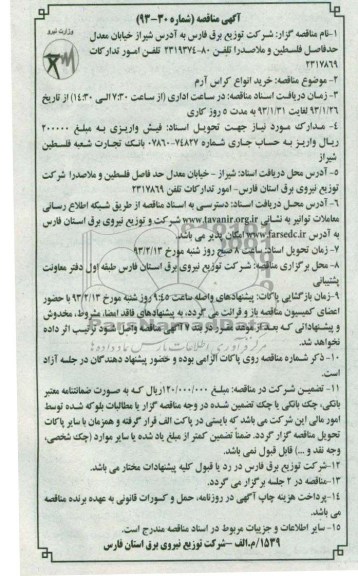 آگهی مناقصه (شماره ۳۰-۹۳)
وزارت نیرو
۱-نام مناقصه گزار: شرکت توزیع برق فارس به آدرس شیراز خیابان معدل
حدفاصل فلسطین و ملاصدرا تلفن ۸۰-۲۳۱۹۳۷۴ تلفن امور تدارکات
۲۳۱۷۸۶۹
۲- موضوع مناقصه: خرید انواع کراس آرم
۳- زمان دریافت اسناد مناقصه: در ساعت اداری (از ساعت ۷:۳۰ الی ۱۴:۳۰) از تاریخ
۹۳/۱/۲۶ لغایت ۹۳/۱/۳۱ به مدت ۵ روز کاری
۴- مدارک مورد نیاز جهت تحویل اسناد: فیش واریزی به مبلغ ۲۰۰۰۰۰
ریال واریز به حساب جاری شماره ۷۴۸۲۷-۰۷۸۶۰ بانک تجارت شعبه فلسطین
شیراز
۵- آدرس محل دریافت اسناد: شیراز - خیابان معدل حد فاصل فلسطین و ملاصدرا شرکت
توزیع نیروی برق استان فارس- امور تدارکات تلفن ۲۳۱۷۸۶۹
۶- آدرس محل دریافت اسناد: دسترسی به اسناد مناقصه از طریق شبکه اطلاع رسانی
معاملات توانیر به نشانی www.tavanir.org.ir و شرکت توزیع نیروی برق استان فارس
به آدرس www.farsedc.ir امکان پذیر می باشد.
۷- زمان تحویل اسناد: ساعت ۸ صبح روز شنبه مورخ ۹۳/۲/۱۳
۸- محل برگزاری مناقصه: شرکت توزیع نیروی برق استان فارس طبقه اول دفتر معاونت
پشتیبانی
۹- زمان بازگشایی پاکات: پیشنهادهای واصله ساعت ۹:۴۵ روز شنبه مورخ ۹۳/۲/۱۳ با حضور
اعضای کمیسیون مناقصه باز و قرائت می گردد، به پیشنهادهای فاقد امضا، مشروط، مخدوش
و پیشنهاداتی که بعد از موعد مقرر در بند ۷ آگهی مناقصه واصل شود ترتیب اثر داده
نخواهد شد.
۱۰- ذکر شماره مناقصه روی پاکات الزامی بوده و حضور پیشنهاد دهندگان در جلسه آزاد
است.
۱۱- تضمین شرکت در مناقصه: مبلغ ۱۲۰/۰۰۰/۰۰۰ ریال که به صورت ضمانتنامه معتبر
بانکی، چک بانکی یا چک تضمین شده در وجه مناقصه گزار یا مطالبات بلوکه شده توسط
امور مالی این شرکت می باشد که بایستی در پاکت الف قرار گرفته و همزمان با سایر پاکات
تحویل مناقصه گزار گردد. ضمنا تضمین کمتر از مبلغ یاد شده یا سایر موارد (چک شخصی،
وجه نقد و ...) قابل قبول نمی باشد.
۱۲- شرکت توزیع برق فارس در رد یا قبول کلیه پیشنهادات مختار می باشد.
۱۳-مناقصه در ۲ جلسه برگزار می گردد.
۱۴- پرداخت هزینه چاپ آگهی در روزنامه، حمل و کسورات قانونی به عهده برنده مناقصه
می باشد.
۱۵- سایر اطلاعات و جزییات مربوط در اسناد مناقصه مندرج است.
۱۵۳۹/م.الف -شرکت توزیع نیروی برق استان فارس